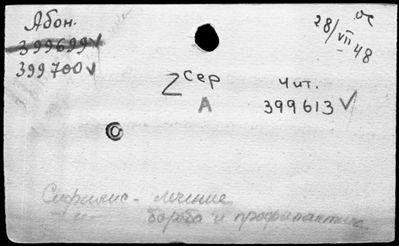 Абон.
399699 ✓
399700 ✓
28/VII 48
2 Сер
А
Чит.
399613 ✓
Сифилис - лечение
борьба и профилактика